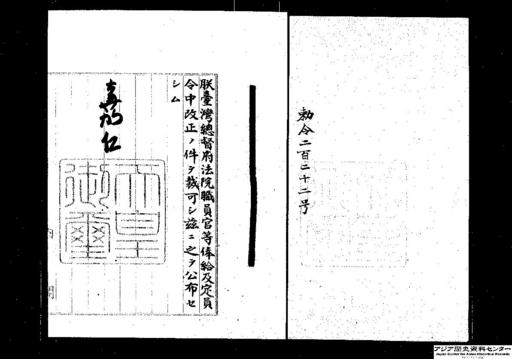 勅令二百二十二号
朕臺灣總督府法院職員官等俸給及定員
令中改正ノ件ヲ裁可シ茲ニ之ヲ公布セ
シム
嘉仁
天皇
御璽
内閣
アジア歴史資料センター
Japan Center for Asian Historical Records